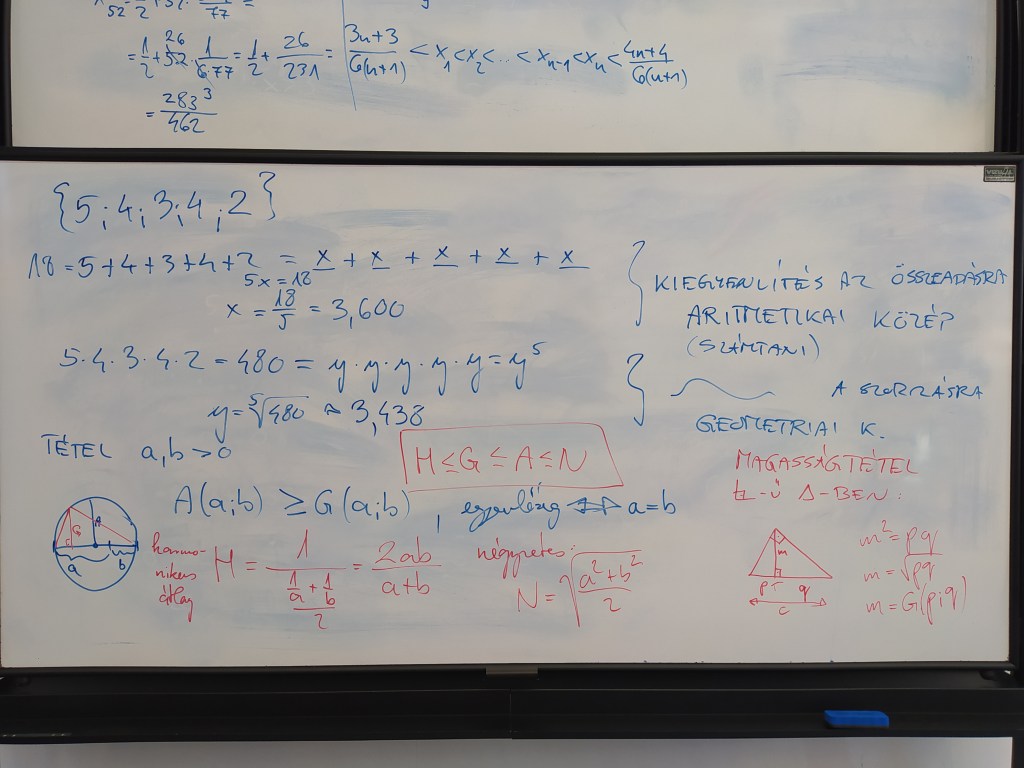 = 1/2 + 52 · 1/(6·77) = 1/2 + 26/231 =
26
= 283/462
3
(3n+3)/(6(n+1)) < x₁ < x₂ < .. < xₙ₋₁ < xₙ < (4n+4)/(6(n+1))
{5; 4; 3; 4; 2}
18 = 5+4+3+4+2 = x + x + x + x + x
5x = 18
x = 18/5 = 3,600
KIEGYENLÍTÉS AZ ÖSSZEADÁSRA
ARITMETIKAI KÖZÉP
(SZÁMTANI)
5·4·3·4·2 = 480 = y·y·y·y·y = y⁵
y = ⁵√480 ≈ 3,438
A SZORZÁSRA
GEOMETRIAI K.
TÉTEL a,b > 0
H ≤ G ≤ A ≤ N
A(a;b) ≥ G(a;b), egyenlőség ⇔ a=b
a b
harmo-
nikus
átlag
H = 1/((1/a + 1/b)/2) = 2ab/(a+b)
négyzetes:
N = √((a²+b²)/2)
MAGASSÁGTÉTEL
-Ú Δ-BEN:
m
p q
c
m² = pq
m = √pq
m = G(p;q)